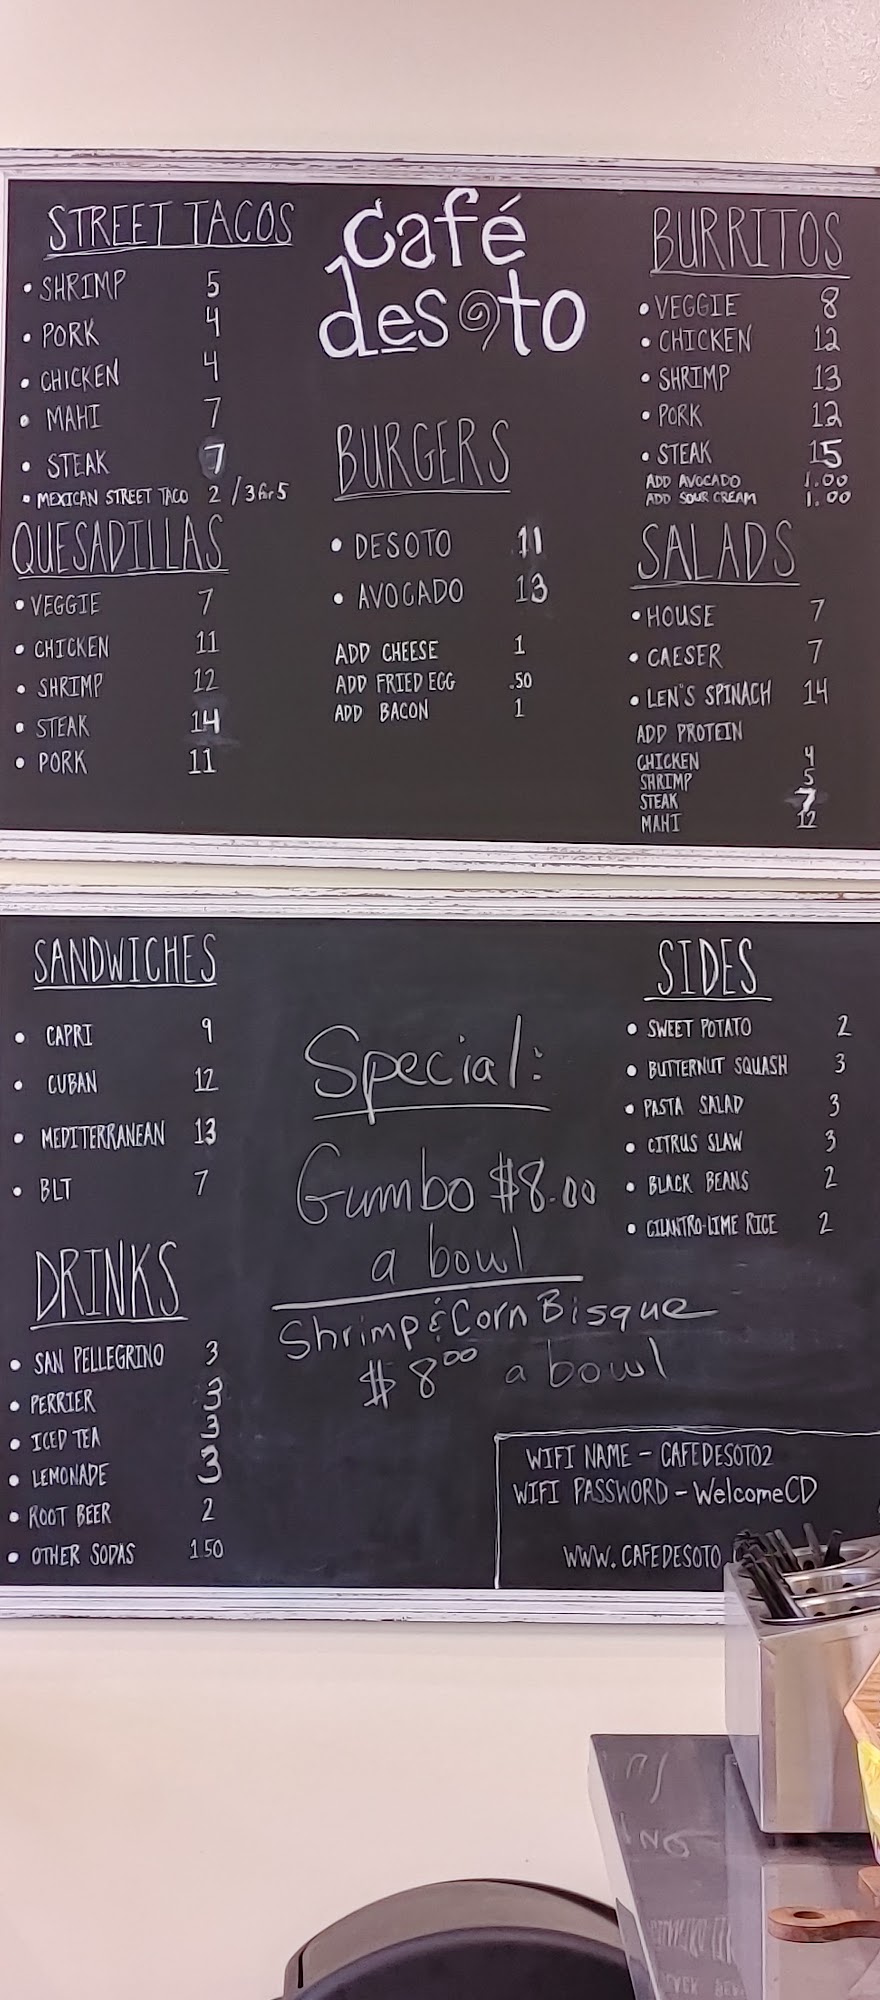 STREET TACOS
• SHRIMP 5
• PORK 4
• CHICKEN 4
• MAHI 7
• STEAK 7
• MEXICAN STREET TACO 2 / 3 for 5
QUESADILLAS
• VEGGIE 7
• CHICKEN 11
• SHRIMP 12
• STEAK 14
• PORK 11
café
desoto
BURGERS
• DESOTO 11
• AVOCADO 13
ADD CHEESE 1
ADD FRIED EGG .50
ADD BACON 1
BURRITOS
• VEGGIE 8
• CHICKEN 12
• SHRIMP 13
• PORK 12
• STEAK 15
ADD AVOCADO 1.00
ADD SOUR CREAM 1.00
SALADS
• HOUSE 7
• CAESER 7
• LEN'S SPINACH 14
ADD PROTEIN
CHICKEN 4
SHRIMP 5
STEAK 7
MAHI 12
SANDWICHES
• CAPRI 9
• CUBAN 12
• MEDITERRANEAN 13
• BLT 7
DRINKS
• SAN PELLEGRINO 3
• PERRIER 3
• ICED TEA 3
• LEMONADE 3
• ROOT BEER 2
• OTHER SODAS 1.50
Special:
Gumbo $8.00
a bowl
Shrimp & Corn Bisque
$8.00 a bowl
SIDES
• SWEET POTATO 2
• BUTTERNUT SQUASH 3
• PASTA SALAD 3
• CITRUS SLAW 3
• BLACK BEANS 2
• CILANTRO-LIME RICE 2
WIFI NAME - CAFEDESOTO2
WIFI PASSWORD - WelcomeCD
WWW.CAFEDESOTO